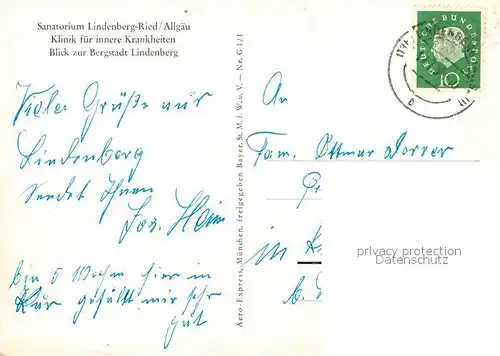 Sanatorium Lindenberg-Ried/Allgäu
Klinik für innere Krankheiten
Blick zur Bergstadt Lindenberg
Viele Grüße aus
Lindenberg
sendet Ihnen
Jos.
bin 5 Wochen hier in
Kur gefällt mir sehr
gut
Aero-Express, München, freigegeben Bayer. St. M. f. W. u. V. – Nr. G 1/1
An
Fam. Ottmar Dorrer
in
DEUTSCHE BUNDESPOST
10
b
privacy protection
Datenschutz